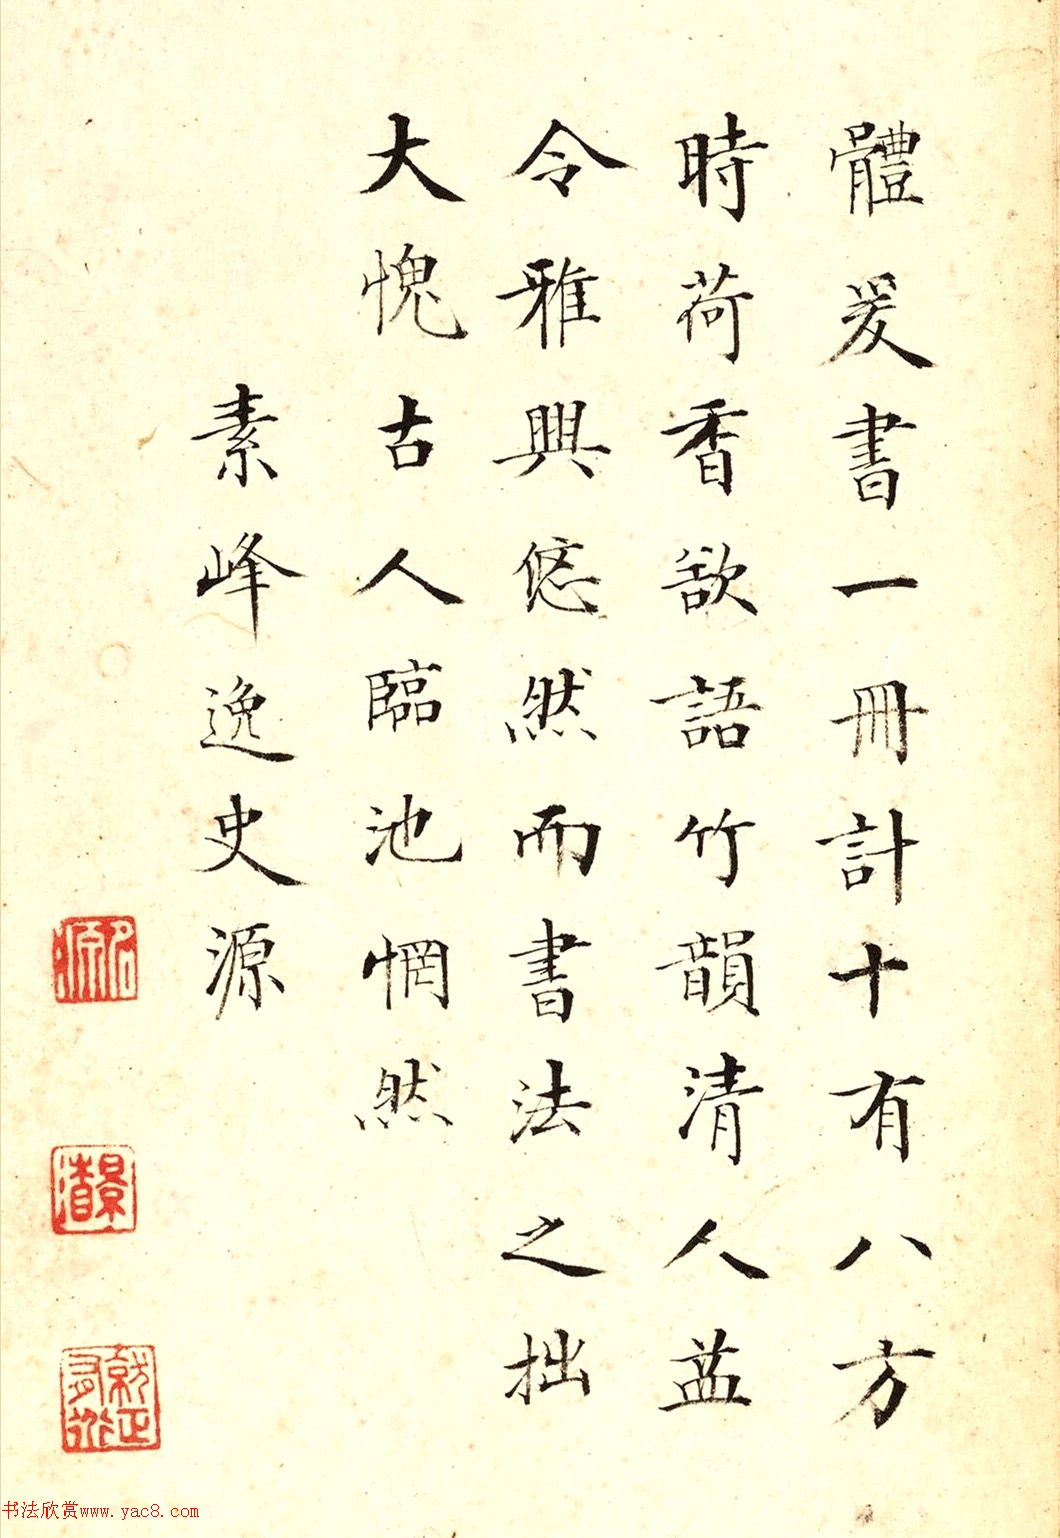 體爰書一冊計十有八方
時荷香欲語竹韻清人益
令雅興悠然而書法之拙
大愧古人臨池惘然
素峰逸史源
就正有道
书法欣赏www.yac8.com